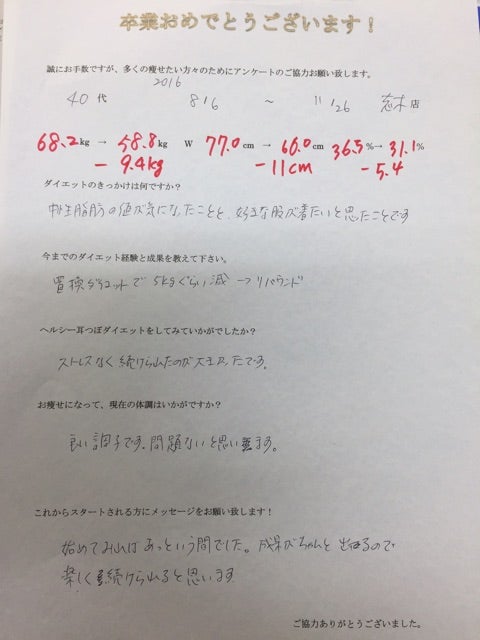 卒業おめでとうございます！
誠にお手数ですが、多くの痩せたい方々のためにアンケートのご協力お願い致します。
2016
40代 8/6 ～ 11/26 志木店
68.2kg → 58.8kg W 77.0cm → 66.0cm 36.5% → 31.1%
－9.4kg －11cm －5.4
ダイエットのきっかけは何ですか？
中性脂肪の値が気になったことと、好きな服が着たいと思ったことです
今までのダイエット経験と成果を教えて下さい。
置換ダイエットで5kgぐらい減→リバウンド
ヘルシー耳つぼダイエットをしてみていかがでしたか？
ストレスなく続けられたのが大きかったです。
お痩せになって、現在の体調はいかがですか？
良い調子です。問題ないと思います。
これからスタートされる方にメッセージをお願い致します！
始めてみればあっという間でした。成果がちゃんと出せるので
楽しく続けられると思います
ご協力ありがとうございました。